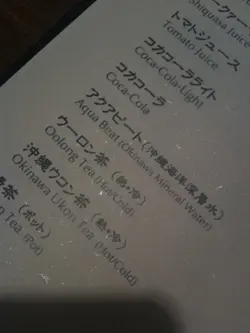 Shiquasa Juice
トマトジュース
Tomato Juice
コカコーラライト
Coca-Cola-Light
コカコーラ
Coca-Cola
アクアビート(沖縄海洋深層水)
Aqua Beat (Okinawa Mineral Water)
ウーロン茶 (熱・冷)
Oolong Tea (Hot/Cold)
沖縄ウコン茶 (熱・冷)
Okinawa Ukon Tea (Hot/Cold)
茶 (ポット)
Tea (Pot)